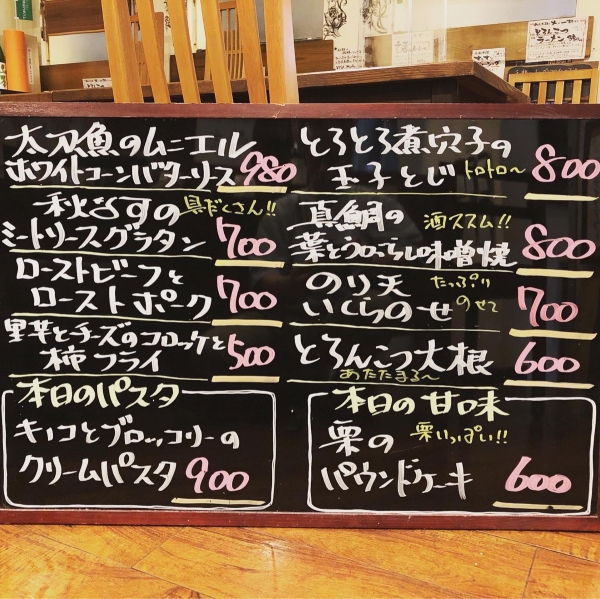 太刀魚のムニエル
ホワイトコーンバターソース 980
秋なすの 具だくさん!!
ミートソースグラタン 700
ローストビーフと
ローストポーク 700
里芋とチーズのコロッケと
柿フライ 500
本日のパスタ
キノコとブロッコリーの
クリームパスタ 900
とろとろ煮穴子の
玉子とじ トロトロ〜 800
真鯛の 酒ススム!!
葉とうがらし味噌焼 800
のり天 たっぷり
いくらのせ のせて 700
とろんこつ大根 600
あたたまる〜
本日の甘味
栗の 栗いっぱい!!
パウンドケーキ 600
とろんこつ
ラーメン